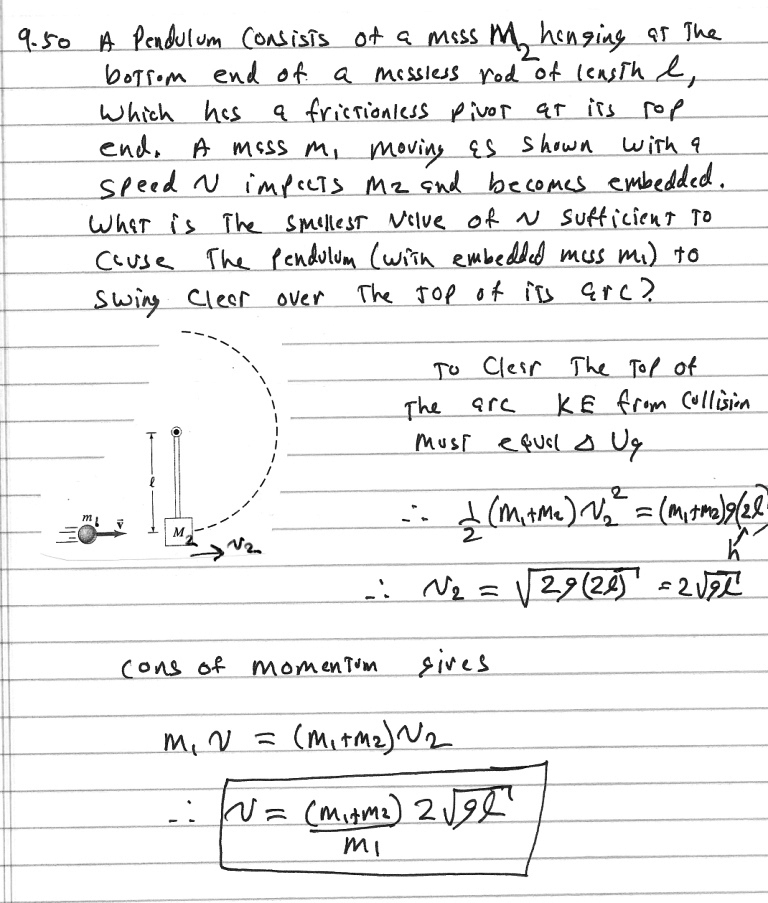 9.50 A Pendulum Consists of a mass M₂ hanging at The
bottom end of a massless rod of length l,
which has a frictionless pivot at its top
end. A mass m₁ moving as shown with a
speed v impacts m₂ and becomes embedded.
What is The smallest value of v sufficient to
cause The Pendulum (with embedded mass m₁) to
swing clear over The top of its arc?
To Clear The Top of
The arc KE from Collision
Must equal Δ Ug
l
m₁ v⃗
M₂
→ v₂
∴ 1/2 (m₁+m₂) v₂² = (m₁+m₂)g(2l)
h
∴ v₂ = √2g(2l) = 2√gl
Cons of momentum gives
m₁ v = (m₁+m₂) v₂
∴ v = (m₁+m₂)/m₁ 2√gl